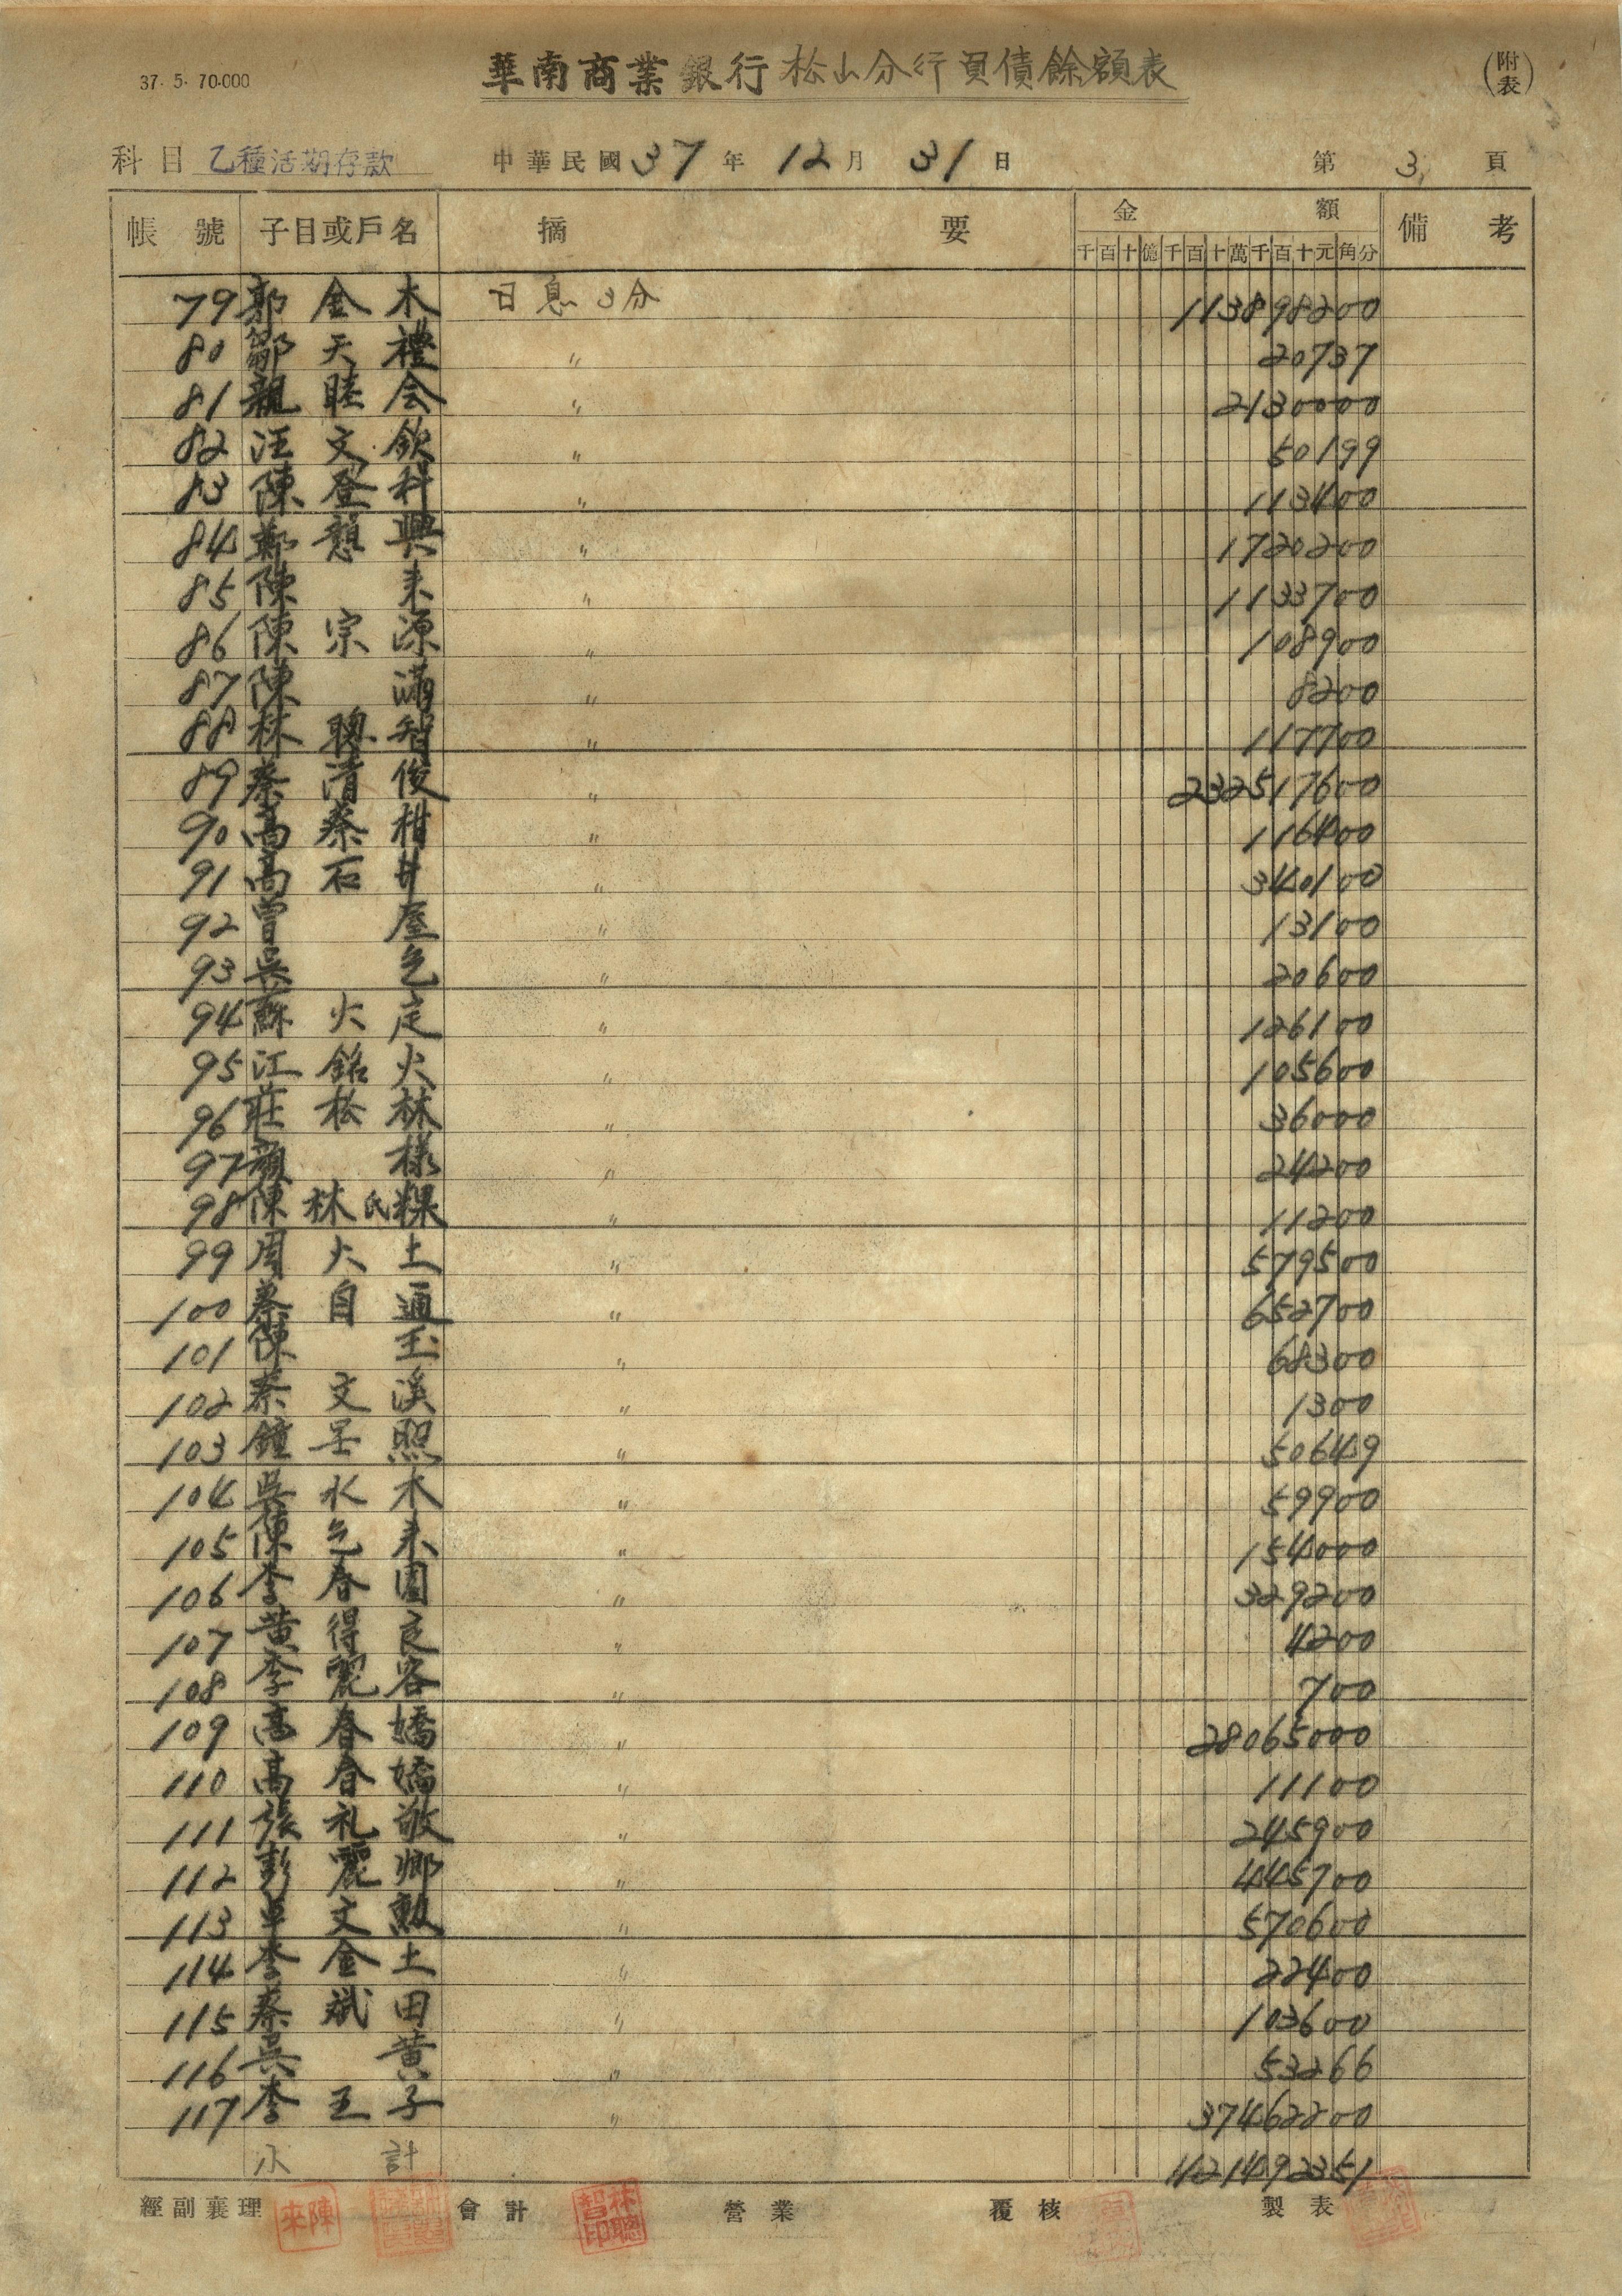 37. 5. 70.000
華南商業銀行松山分行負債餘額表
(附表)
科目 乙種活期存款 中華民國37年12月31日 第3頁
帳號 子目或戶名 摘要 金額 備考
千百十億千百十萬千百十元角分
79 郭金木 日息3分 113898200
80 鄒天禮 〃 20737
81 親睦会 〃 2130000
82 汪文欽 〃 50199
83 陳登科 〃 113400
84 鄭憩興 〃 1720200
85 陳来 〃 1133700
86 陳宗源 〃 108900
87 陳滿 〃 8200
88 林聰智 〃 117700
89 蔡清俊 〃 232517600
90 高蔡柑 〃 116400
91 高石井 〃 340100
92 曾屋 〃 13100
93 吳乞 〃 20600
94 蘇火定 〃 126100
95 江銘火 〃 105600
96 莊松林 〃 36000
97 顏様 〃 24200
98 陳林氏粿 〃 11200
99 周火土 〃 579500
100 蔡自通 〃 652700
101 陳玉 〃 68300
102 蔡文溪 〃 1300
103 鐘照 〃 50649
104 吳水木 〃 59900
105 陳乞来 〃 154000
106 李春園 〃 329200
107 黃得良 〃 4200
108 李麗容 〃 700
109 高春嬌 〃 28065000
110 高春嬌 〃 11100
111 張礼敬 〃 245900
112 彭麗卿 〃 445700
113 卓文勲 〃 570600
114 李金土 〃 22400
115 蔡斌田 〃 103600
116 吳黃 〃 53266
117 李玉子 〃 37462200
小計 421492351
經副襄理 陳來 會計 林聰智印 營業 覆核 製表